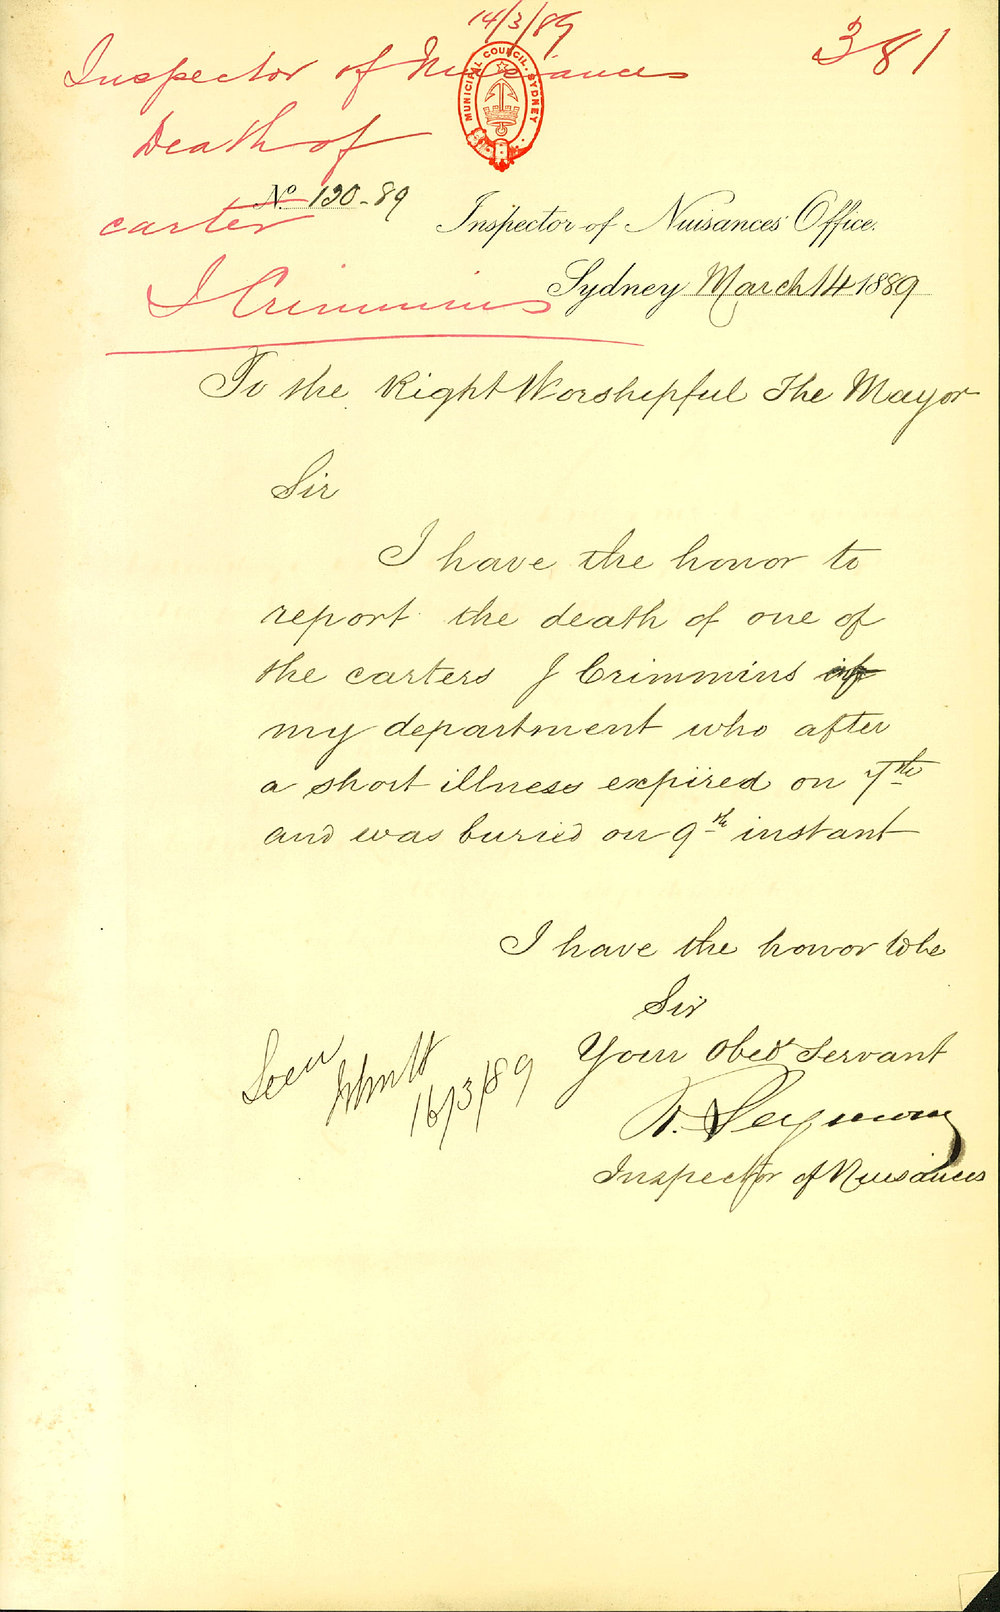 14/3/89
381
Inspector of Nuisances
MUNICIPAL COUNCIL, SYDNEY
Death of
No 130-89
carter
Inspector of Nuisances' Office.
J Crimmins
Sydney March 14 1889
To the Right Worshipful The Mayor
Sir
I have the honor to
report the death of one of
the carters J Crimmins of
my department who after
a short illness expired on 7th
and was buried on 9th instant
I have the honor to be
Sir
Your Obed Servant
Seen
16/3/89
R. Seymour
Inspector of Nuisances